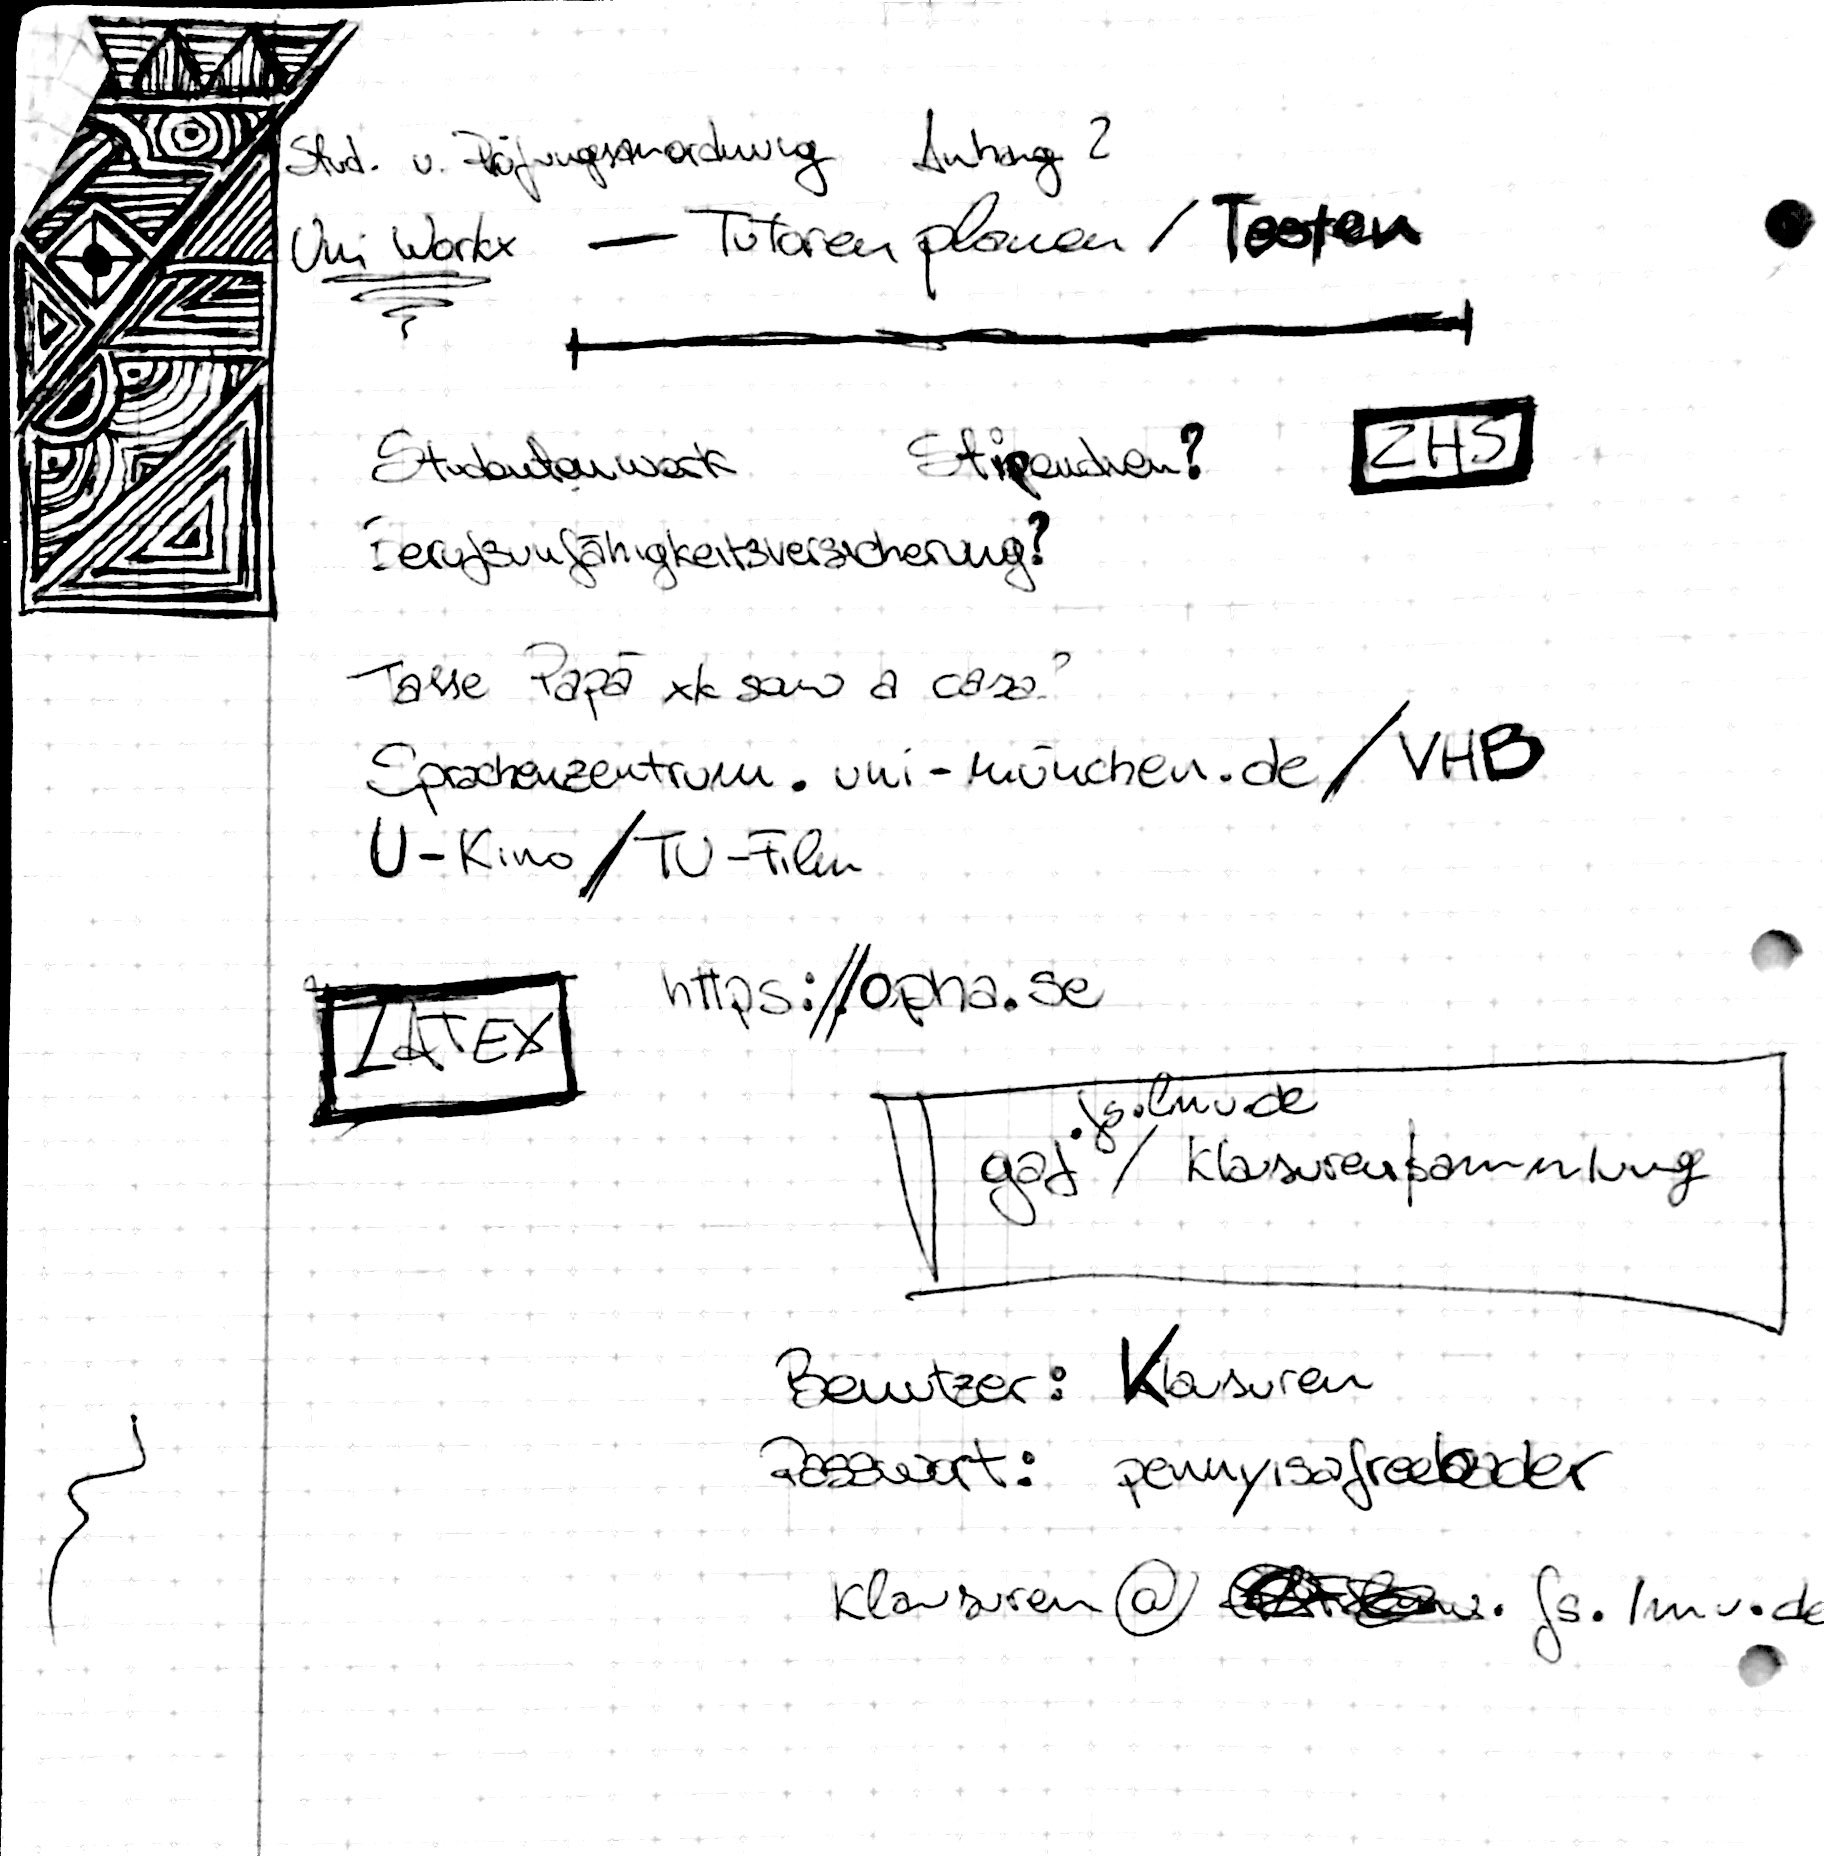 Stud. u. Prüfungsanordnung Anhang 2
Uni Workx — Tutoren planen / Testen
Studentenwerk Stipendien? ZHS
Berufsunfähigkeitsversicherung?
Tasse Papà xk sow a casa?
Sprachenzentrum.uni-münchen.de/VHB
U-Kino/TU-Film
https://opha.se
LATEX
.fs.lmu.de
gaf / Klausurensammlung
Benutzer: Klausuren
Passwort: pennyisafreeloader
klausuren@ .fs.lmu.de